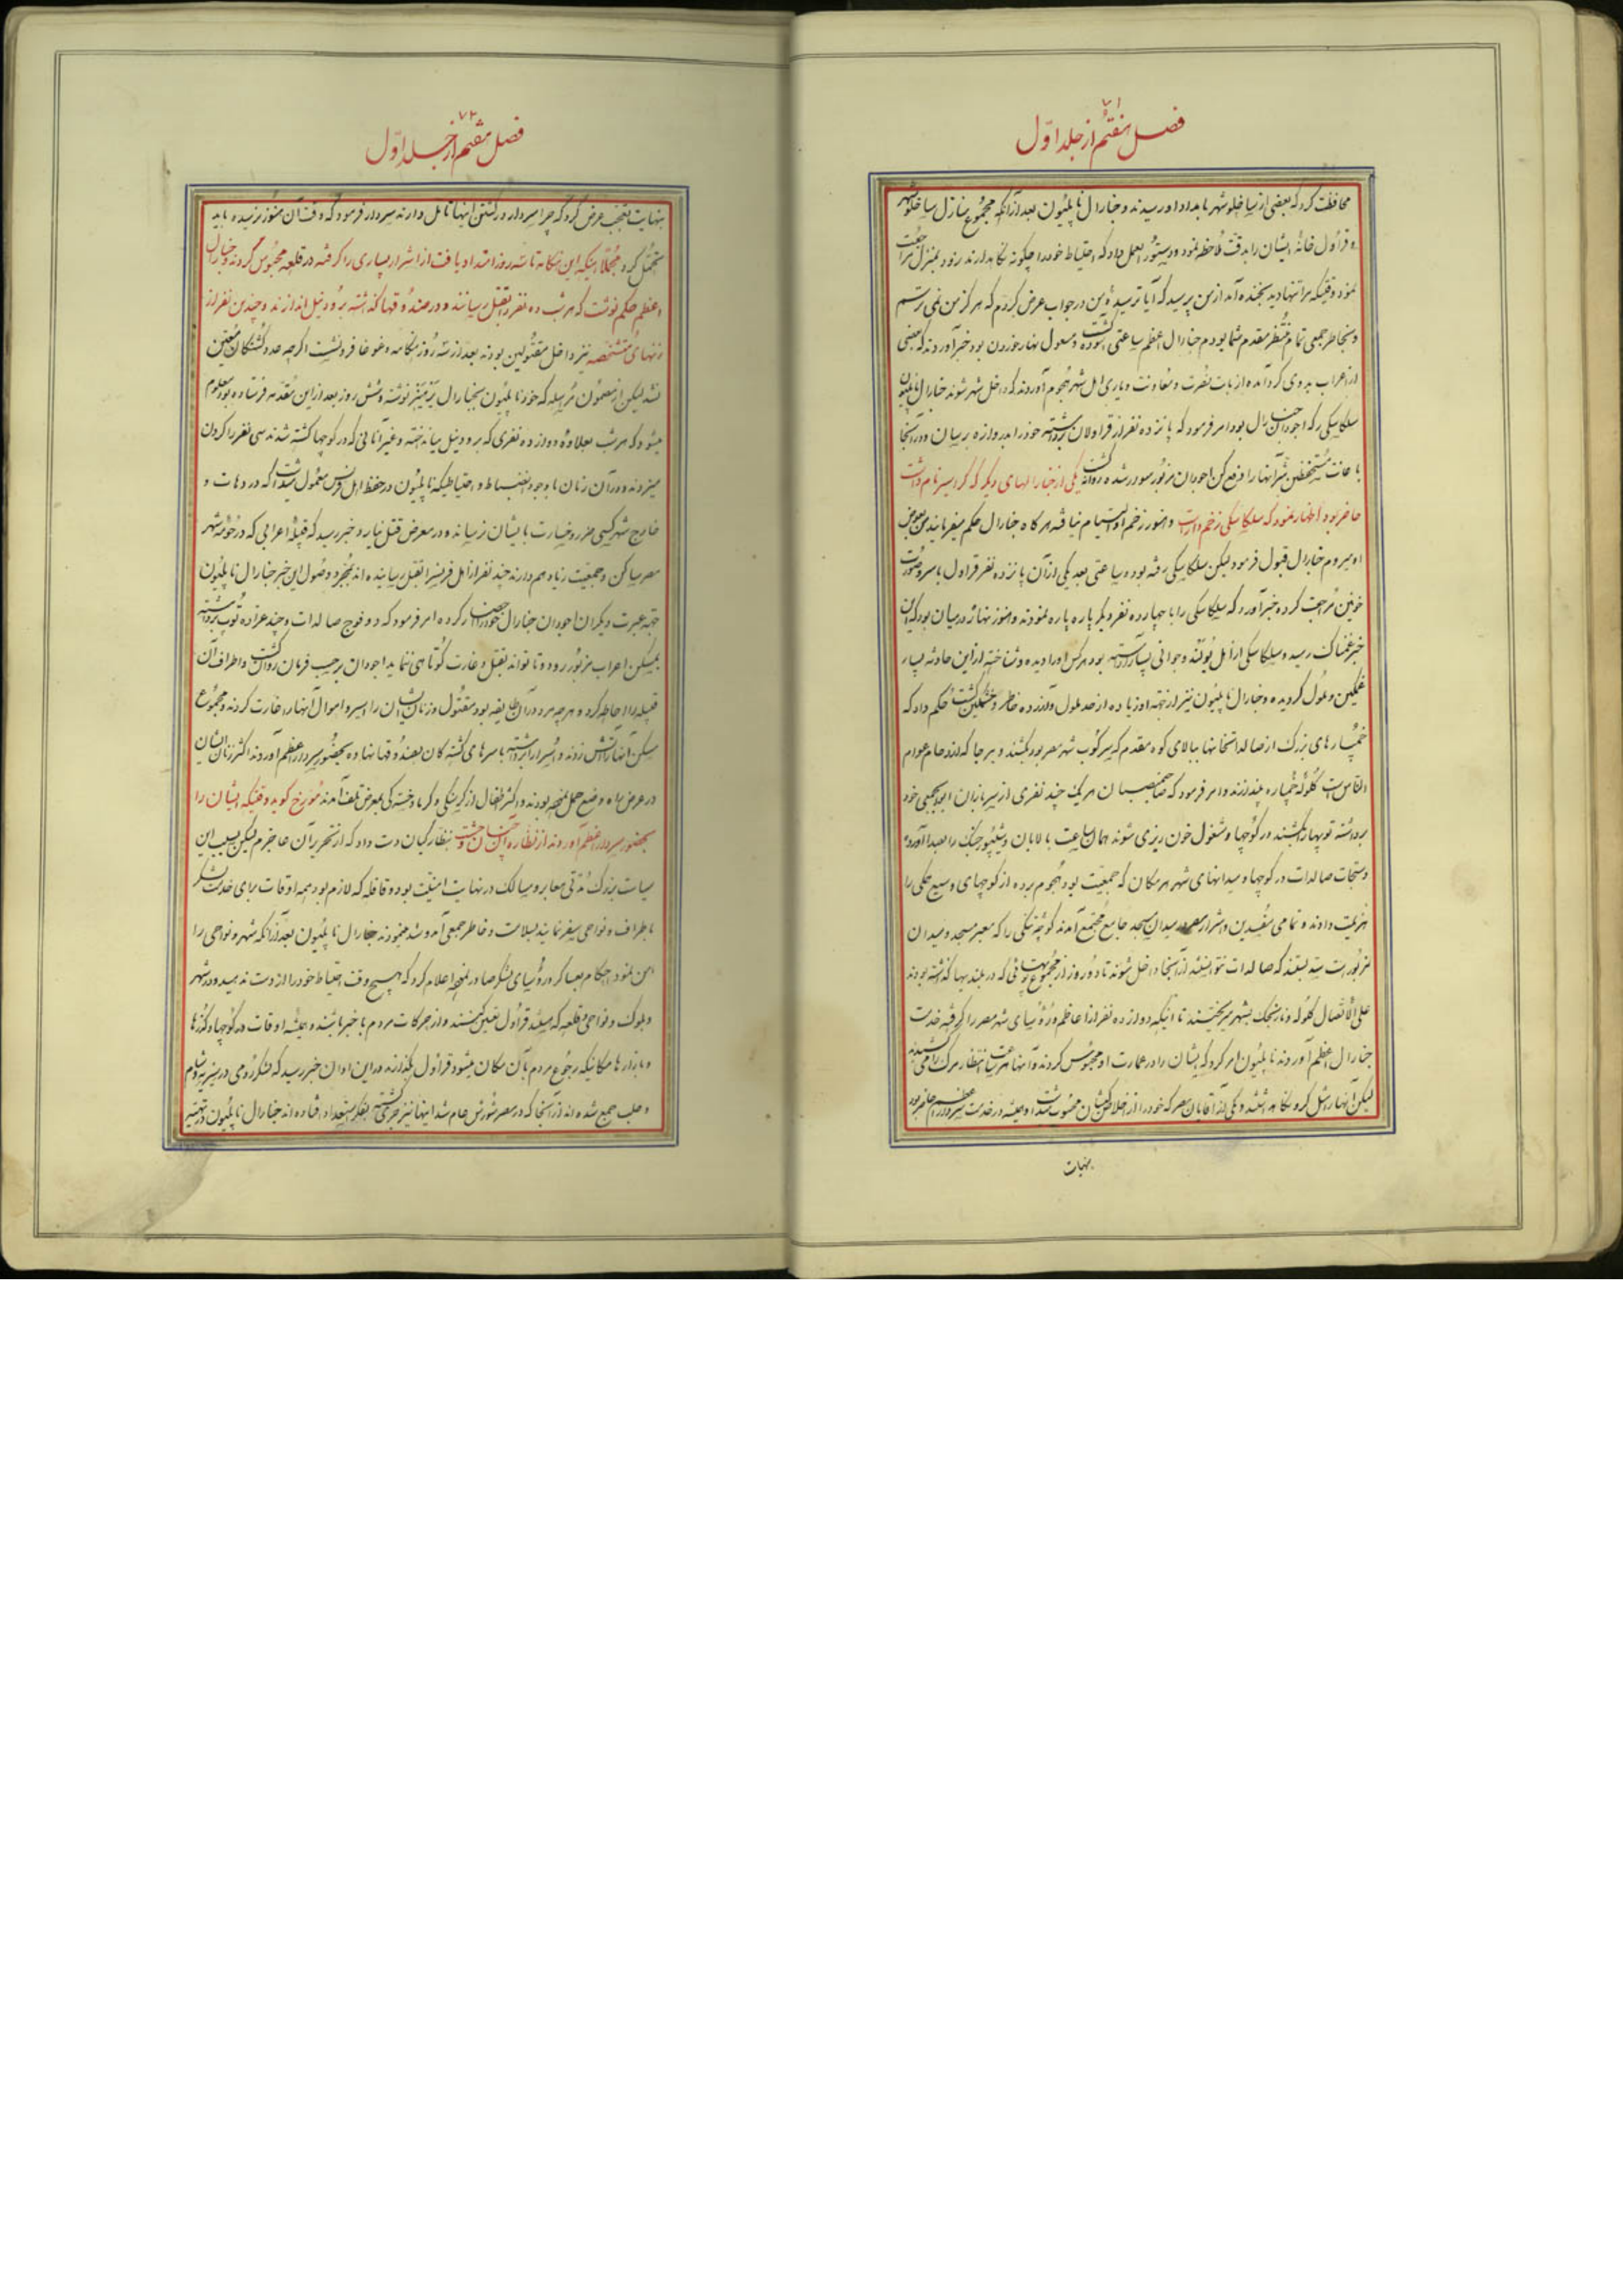 ۷۱
فصل هفتم از جلد اوّل
محافظت کرد که بعضی از ساخلو شهر بامداد او رسیدند و جنارال ناپلیون بعد از آنکه مجموع منازل ساخلو شهر
و قراول خانهٔ ایشان را بدقت ملاحظه نمود و دستورالعمل داد که احتیاط خود را چگونه نگاه دارند رود بمنزل مراجعت
نمود وقتیکه مرا تنها دید بخنده آمد از من پرسید که آیا ترسیدهٔ من در جواب عرض کردم که هرگز من نمی ترسم
و بخاطر جمعی تمام منتظر مقدم شما بودم جنارال اعظم ساعتی آسوده گشت و مشغول نهار خوردن بود خبر آوردند که بعضی
از اعراب بدوی گرد آمده از بابت نصرت و معاونت و یاری اهل شهر هجوم آوردند که داخل شهر شوند جنارال ناپلیون
سلکاسکی که اجودان جنارال بود امر فرمود که پانزده نفر از قراولان برداشته خود را بدروازه برسان و در آنجا
با اعانت مستحفظین شر آنها را دفع کن اجودان مزبور سوار شده روانه گشت یکی از جنارالهای دیگر که کروسیر نام داشت
حاضر بود اظهار نمود که سلکاسکی زخم دارد و هنوز زخم او التیام نیافته هرگاه جنارال حکم میفرمایند من بعوض
او میروم جنارال قبول فرمود لیکن سلکاسکی رفته بود ساعتی بعد یکی از آن پانزده نفر قراول با سر و صورت
خونین مراجعت کرده خبر آورد که سلکاسکی را با چهارده نفر دیگر پاره پاره نمودند و هنوز نهار در میان بود که این
خبر غمناک رسید و سلکاسکی از اهل پولند و جوانی بسیار آراسته بود هر کس او را دیده و شناخته از این حادثه بسیار
غمگین و ملول گردیده و جنارال ناپلیون نیز از جهت او زیاده از حد ملول و آزرده خاطر و خشمگین گشت حکم داد که
خمپاره های بزرگ از صالدات خانها ببالای کوه مقدم که سرکوب شهر مصر بود بکشند و هر جا که ازدحام عوام
الناس است گلوله خمپاره بیندازند و امر فرمود که صاحبمنصبان هر یک چند نفری از سربازان ابوابجمعی خود
برداشته توپها را بکشند در کوچها و مشغول خون ریزی شوند همان ساعت بالابان و شیپور جنگ را بصدا آوردند
دستجات صالدات در کوچها و میدانهای شهر هر مکان که جمعیت بود هجوم برده از کوچهای وسیع همگی را
هزیمت دادند و تمامی مفسدین و اشرار مصر در میدان مسجد جامع مجتمع آمدند کوچه تنگی را که معبر مسجد و میدان
مزبور است سد بستند که صالدات نتوانستند از آنجا داخل شوند تا دو روز از مجموع توپهائی که در بلندیها گذاشته بودند
علی الاتصال گلوله و نارنجک بشهر میریختند تا اینکه دوازده نفر از اعاظم و رؤسای شهر مصر را گرفته خدمت
جنارال اعظم آوردند ناپلیون امر کرد که ایشان را در عمارت او محبوس کردند و آنها هر ساعت انتظار مرگ را می کشیدند
لیکن آنها را مثل گرو نگاه داشتند و یکی از آقایان مصر که خود را از اخلاص کیشان محسوب میداشت و همیشه در خدمت سردار اعظم حاضر بود
بنهایت
۷۲
فصل هفتم از جلد اوّل
بنهایت تعجب عرض کرد که چرا سردار در کشتن اینها تامل دارند سردار فرمود که وقت آن هنوز نرسیده باید
تحمل کرد مجملا اینکه این هنگامه تا سه روز امتداد یافت از اشرار بسیاری را گرفته در قلعه محبوس کردند و جنارال
اعظم حکم نوشت که هر شب ده نفر را بقتل رسانند و در صندوقها گذاشته برود نیل اندازند و چندین نفر از
زنهای متشخصه نیز داخل مقتولین بودند بعد از سه روز هنگامه و غوغا فرو نشست اگرچه عدد کشتگان معین
نشد لیکن از مضمون مرسله که خود ناپلیون بجنارال رینیز نوشته و شش روز بعد از این مقدمه فرستاده بود معلوم
میشود که هر شب بعلاوهٔ دوازده نفری که برود نیل میانداختند و غیر آنانی که در کوچها کشته شدند سی نفر را گردن
میزدند و در آن زمان با وجود انضباط و احتیاطیکه ناپلیون در حفظ اهل فرنس معمول میداشت که در دهات و
خارج شهر کسی ضرر و خسارت بایشان نرساند و در معرض قتل نیارد خبر رسید که قبیله اعرابی که در حومهٔ شهر
مصر ساکن و جمعیت زیاد هم دارند چند نفر از اهل فرنس را بقتل رسانیده اند بمجرد وصول این خبر جنارال ناپلیون
جهة عبرت دیگران اجودان جنارال خود را احضار کرده امر فرمود که دو فوج صالدات و چند عراده توپ برداشته
بمسکن اعراب مزبور رود و تا تواند بقتل و غارت کوتاهی ننماید اجودان بر حسب فرمان روانه گشت و اطراف آن
قبیله را احاطه کرد و هر چه مرد در آن طایفه بود مقتول و زنان ایشان را اسیر و اموال آنها را غارت کردند و مجموع
مسکن آنها را آتش زدند و اسیران را برداشته با سرهای کشته گان بصندوقها نهاده بحضور سردار اعظم آوردند اکثر زنان ایشان
در عرض راه وضع حمل نموده بودند و اکثر اطفال از گرسنگی و گرما و خستگی بمعرض تلف آمدند مورخ گوید وقتیکه ایشان را
بحضور سردار اعظم آوردند از نظاره آن چنان وحشت بنظارکیان دست داد که از تحریر آن عاجزم لیکن بسبب این
سیاست بزرگ مدتی معابر و مسالک در نهایت امنیت بود و قافله که لازم بود همه اوقات برای خدمت لشکر
باطراف و نواحی سفر نمایند بسلامت و خاطر جمعی آمد و شد مینمودند جنارال ناپلیون بعد از آنکه شهر و نواحی را
امن نمود احکام بعساکر و رؤسای لشکر صادر نموده اعلام کرد که هیچ وقت احتیاط خود را از دست ندهید و در شهر
و بلوک و نواحی و قلعه که میباشند قراول تعیین کنند و از حرکات مردم با خبر باشند و همیشه اوقات در کوچها و گذرها
و بازارها مکانیکه رجوع مردم بآن مکان میشود قراول بگذارند در این اوان خبر رسید که لشکر رومی در سیریه و شام
و حلب جمع شده اند از آنجا که در مصر شورش عام شد اینها نیز جری گشته بفکر استعداد افتاده اند جنارال ناپلیون در تهیه